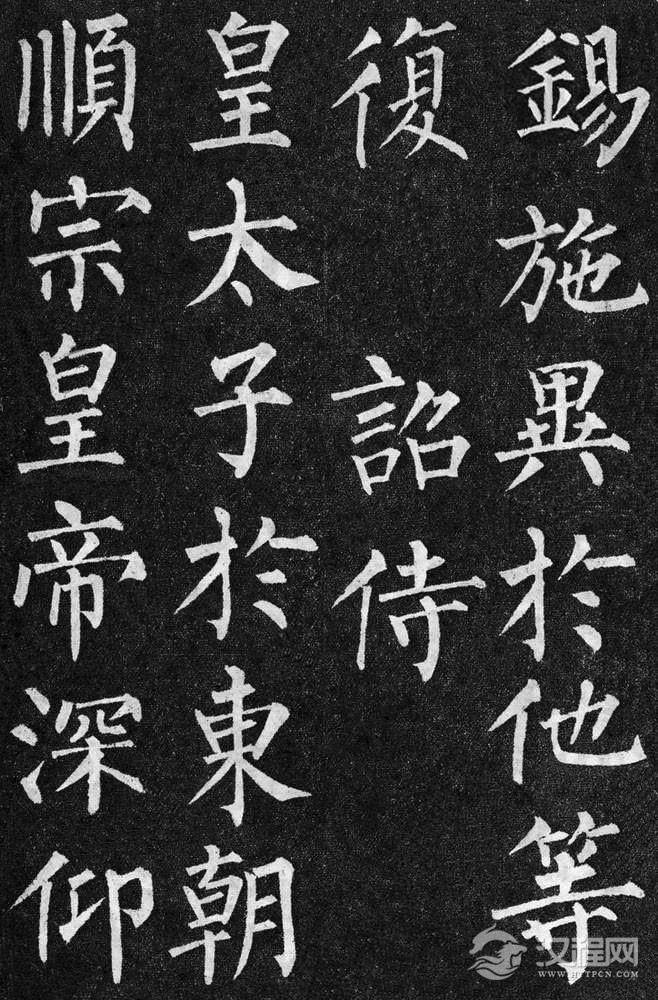 錫施異於他等
復 詔侍
皇太子於東朝
順宗皇帝深仰
汉程网
WWW.HTTPCN.COM